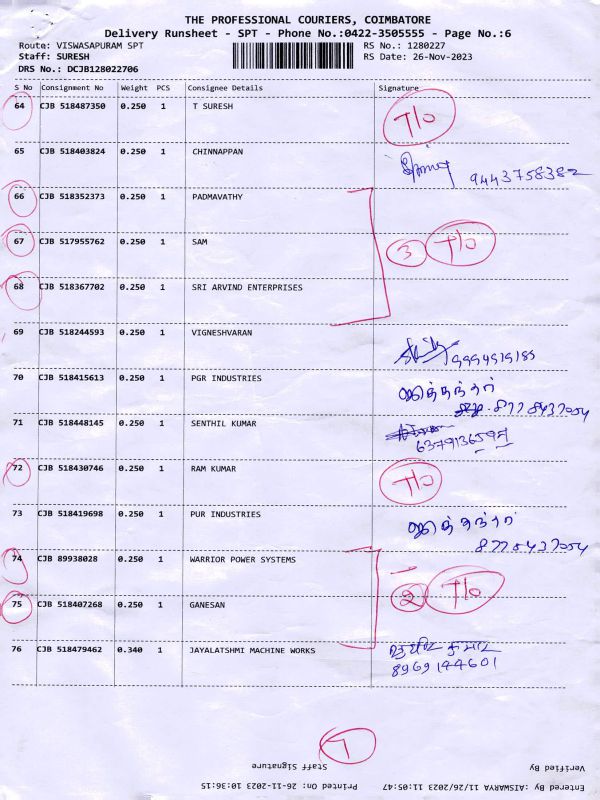 THE PROFESSIONAL COURIERS, COIMBATORE
Delivery Runsheet - SPT - Phone No.:0422-3505555 - Page No.:6
Route: VISWASAPURAM SPT RS No.: 1280227
Staff: SURESH RS Date: 26-Nov-2023
DRS No.: DCJB128022706
S No Consignment No Weight PCS Consignee Details Signature
64 CJB 518487350 0.250 1 T SURESH T/O
65 CJB 518403824 0.250 1 CHINNAPPAN 9443758382
66 CJB 518352373 0.250 1 PADMAVATHY
67 CJB 517955762 0.250 1 SAM 3 T/O
68 CJB 518367702 0.250 1 SRI ARVIND ENTERPRISES
69 CJB 518244593 0.250 1 VIGNESHVARAN
70 CJB 518415613 0.250 1 PGR INDUSTRIES
8778437054
71 CJB 518448145 0.250 1 SENTHIL KUMAR
72 CJB 518430746 0.250 1 RAM KUMAR T/O
73 CJB 518419698 0.250 1 PUR INDUSTRIES
8778437054
74 CJB 89938028 0.250 1 WARRIOR POWER SYSTEMS
75 CJB 518407268 0.250 1 GANESAN 2 T/O
76 CJB 518479462 0.340 1 JAYALATSHMI MACHINE WORKS
8969144601
7
Staff Signature Verified By
Printed On: 26-11-2023 10:36:15 Entered By :AISWARYA 11/26/2023 11:05:47